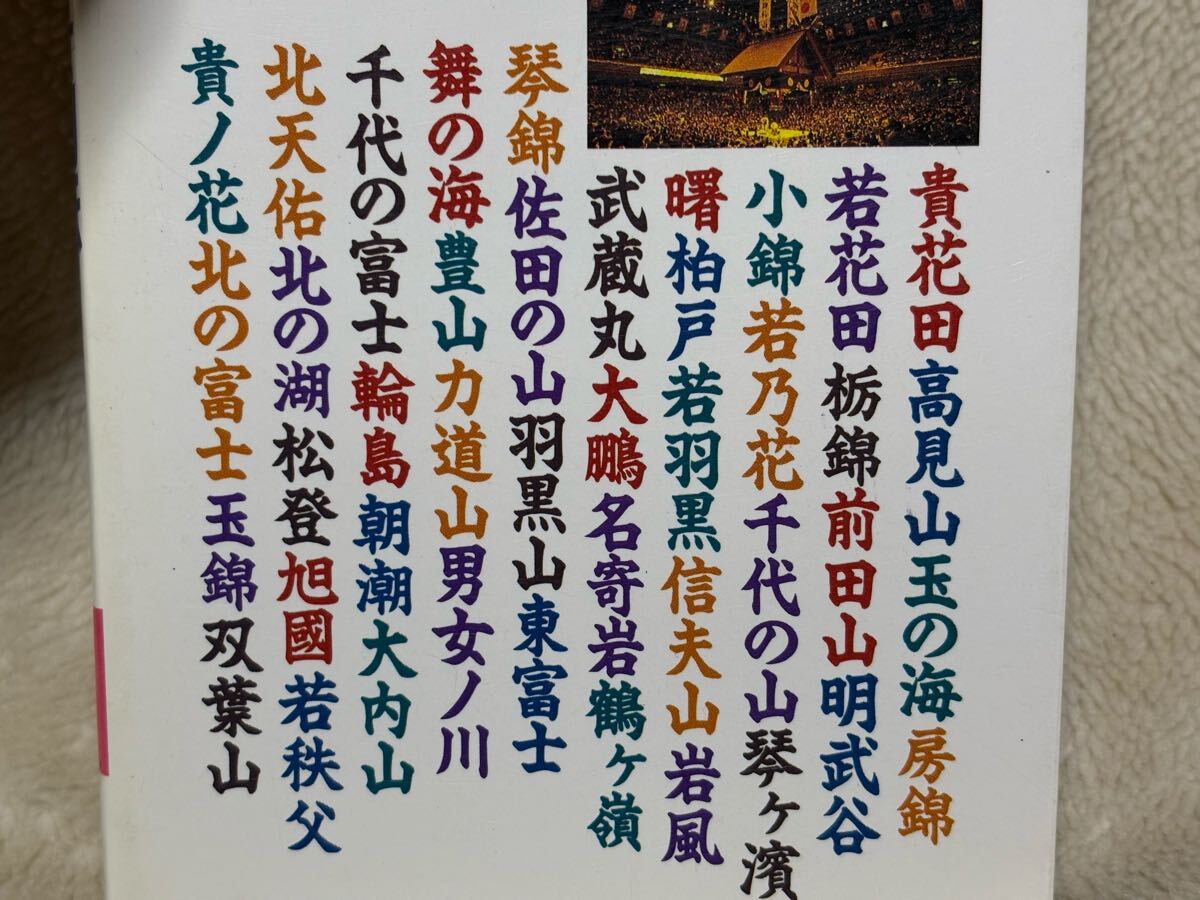 貴花田高見山玉の海房錦
若花田栃錦前田山明武谷
小錦若乃花千代の山琴ヶ濱
曙柏戸若羽黒信夫山岩風
武蔵丸大鵬名寄岩鶴ヶ嶺
琴錦佐田の山羽黒山東富士
舞の海豊山力道山男女ノ川
千代の富士輪島朝潮大内山
北天佑北の湖松登旭國若秩父
貴ノ花北の富士玉錦双葉山